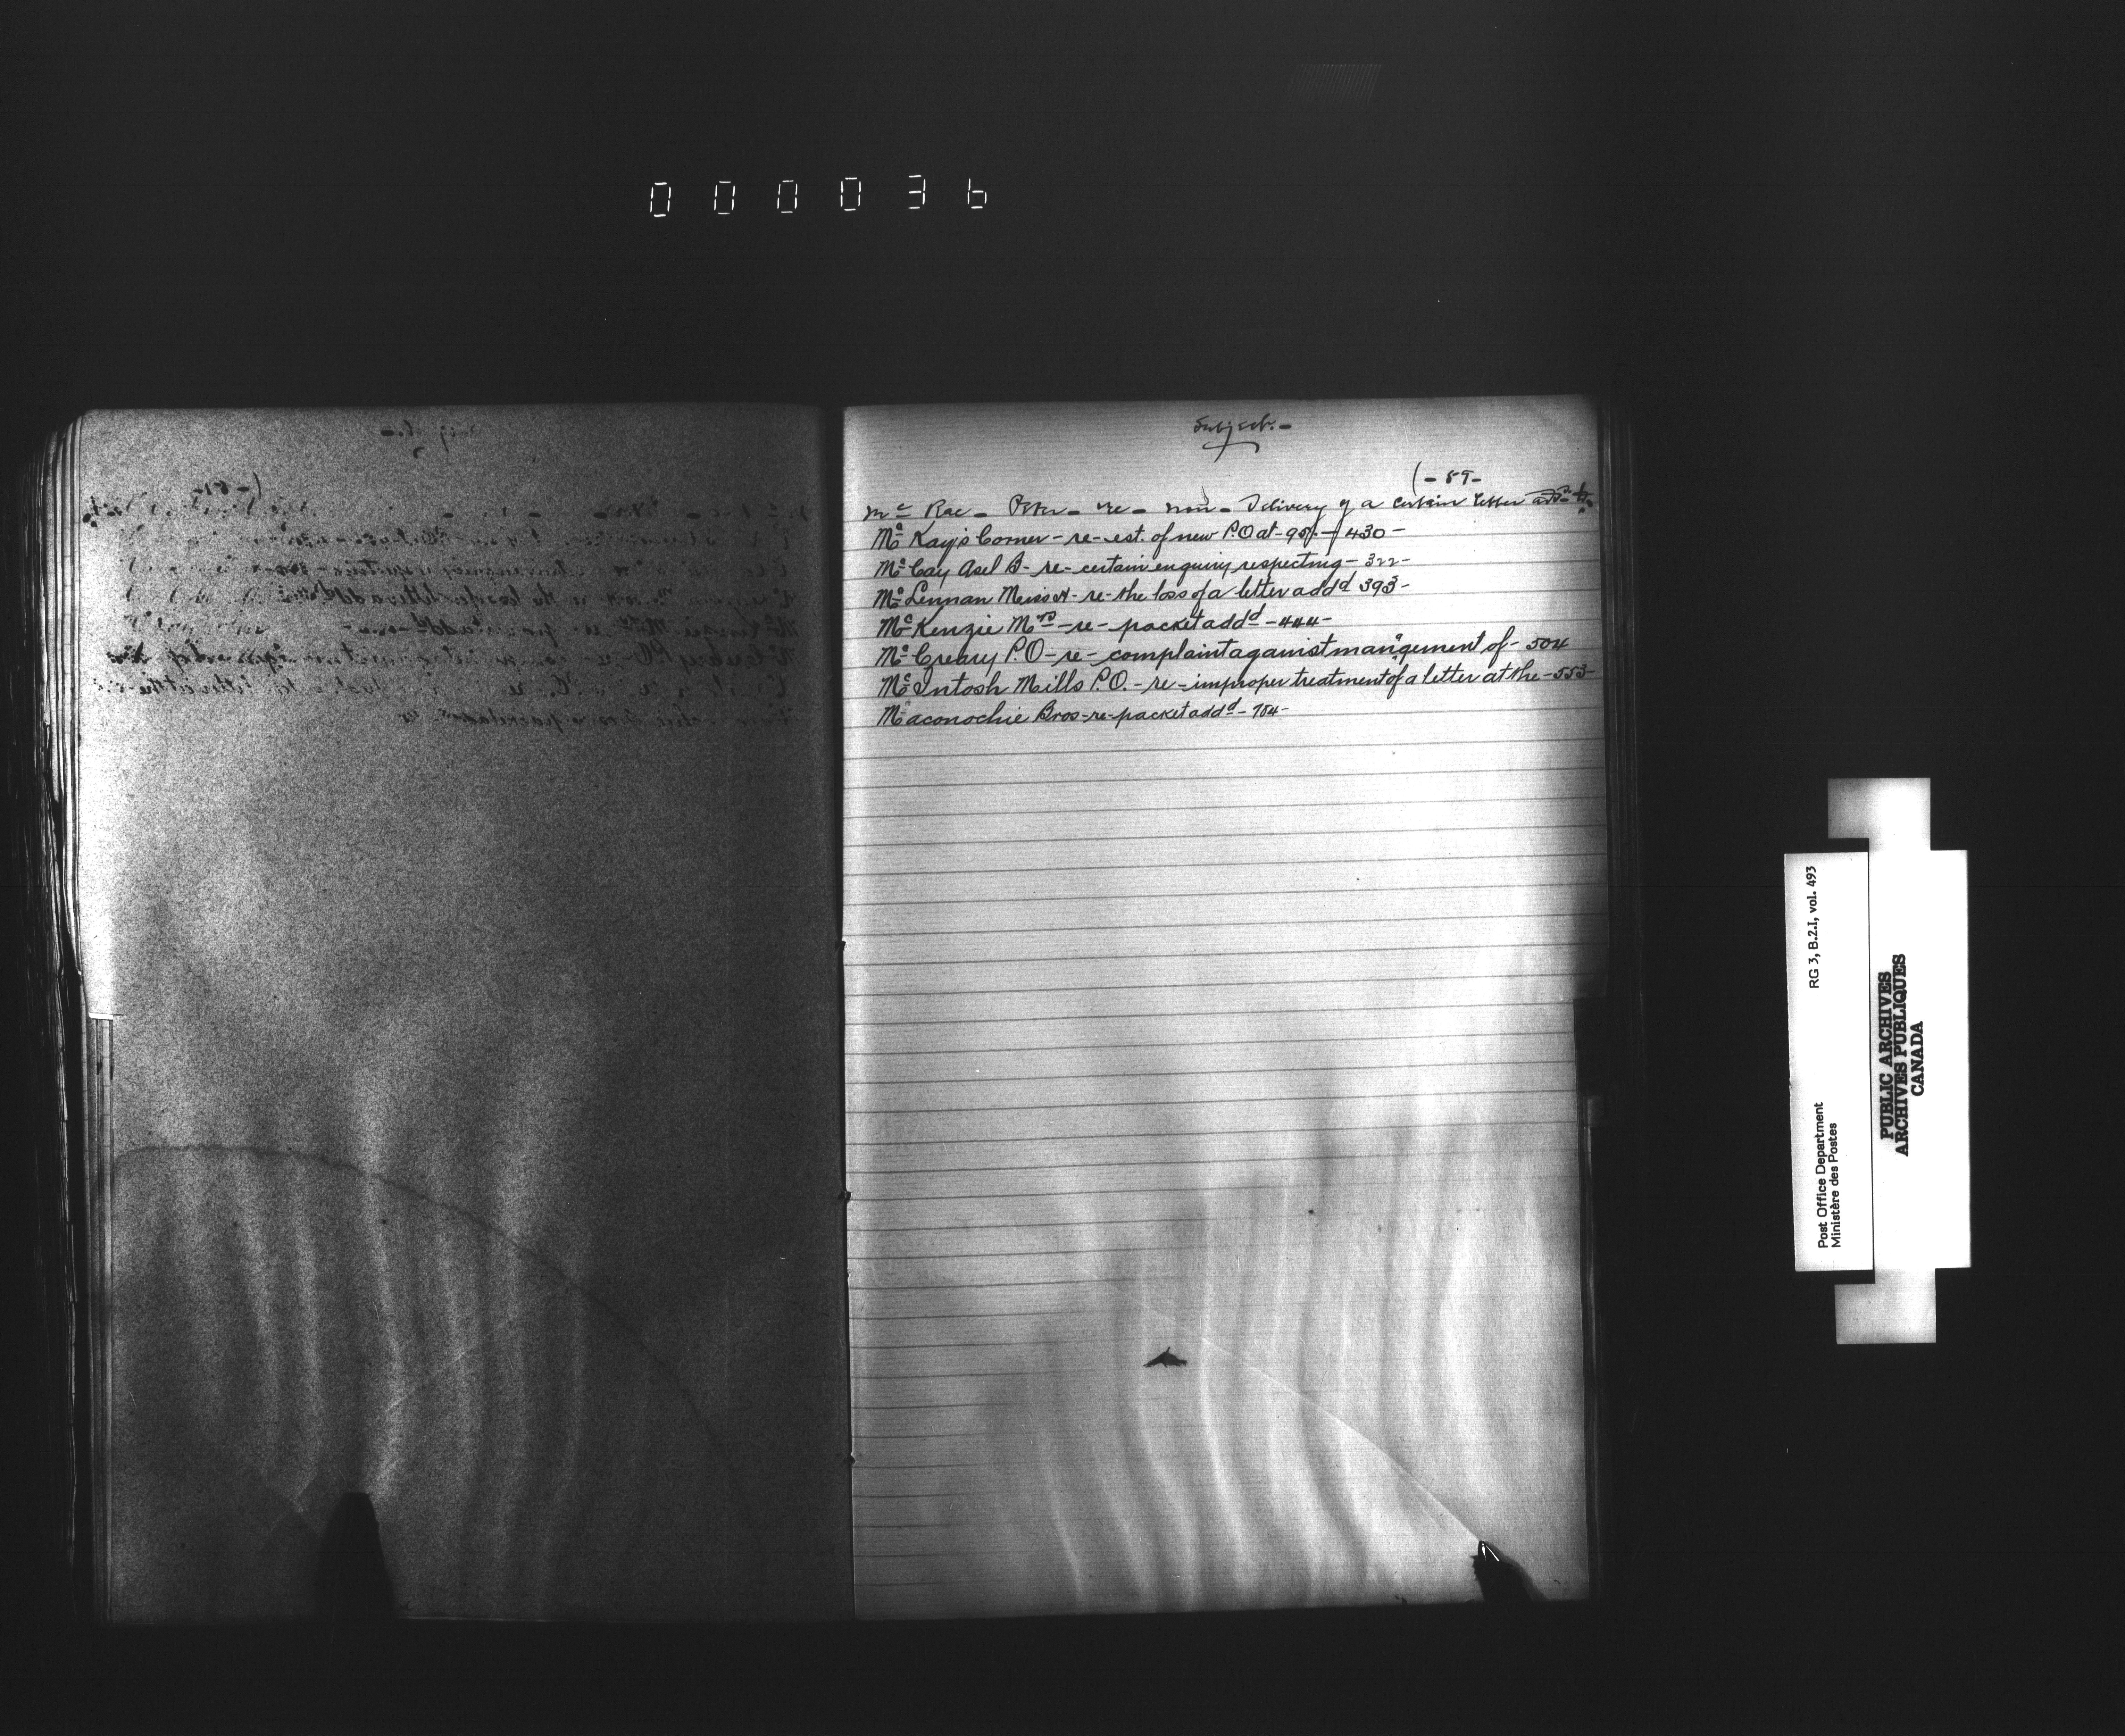 000036
Subject.-
(-89-
Mc Rae - Peter - re - non - Delivery of a certain letter addd to
Mc Kay's Corner - re - est. of new P.O at - 95 - 430 -
Mc Cay Asel B - re - certain enquiry respecting - 322 -
Mc Lennan - re - the loss of a letter addd 393 -
Mc Kenzie Mrs - re - packet addd - 444 -
Mc Creary P.O - re - complaint against mangement of - 504
Mc Intosh Mills P.O. - re - improper treatment of a letter at the - 553 -
Maconochie Bros - re - packet addd - 704 -
RG 3, B.2.1, vol. 493
Post Office Department
Ministère des Postes
PUBLIC ARCHIVES
ARCHIVES PUBLIQUES
CANADA